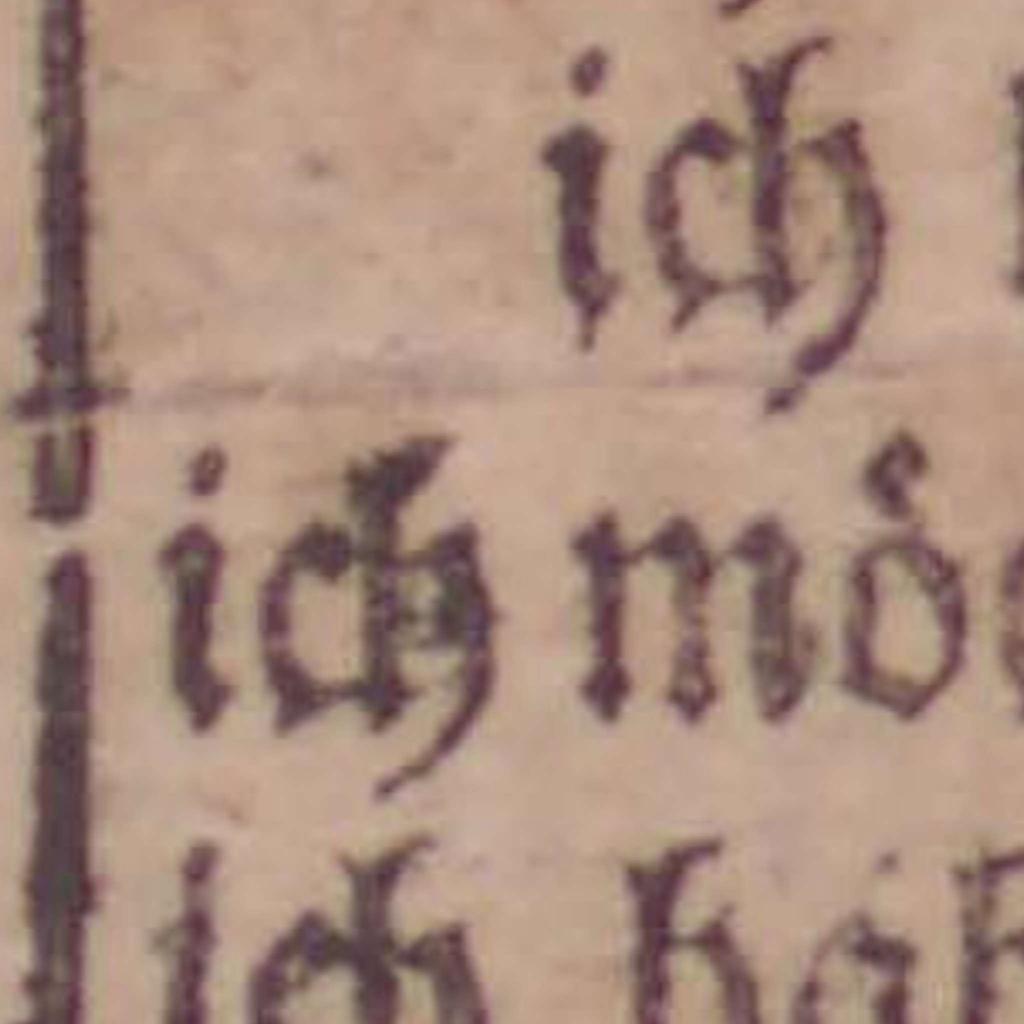 ich
ich mo̊
ich hab